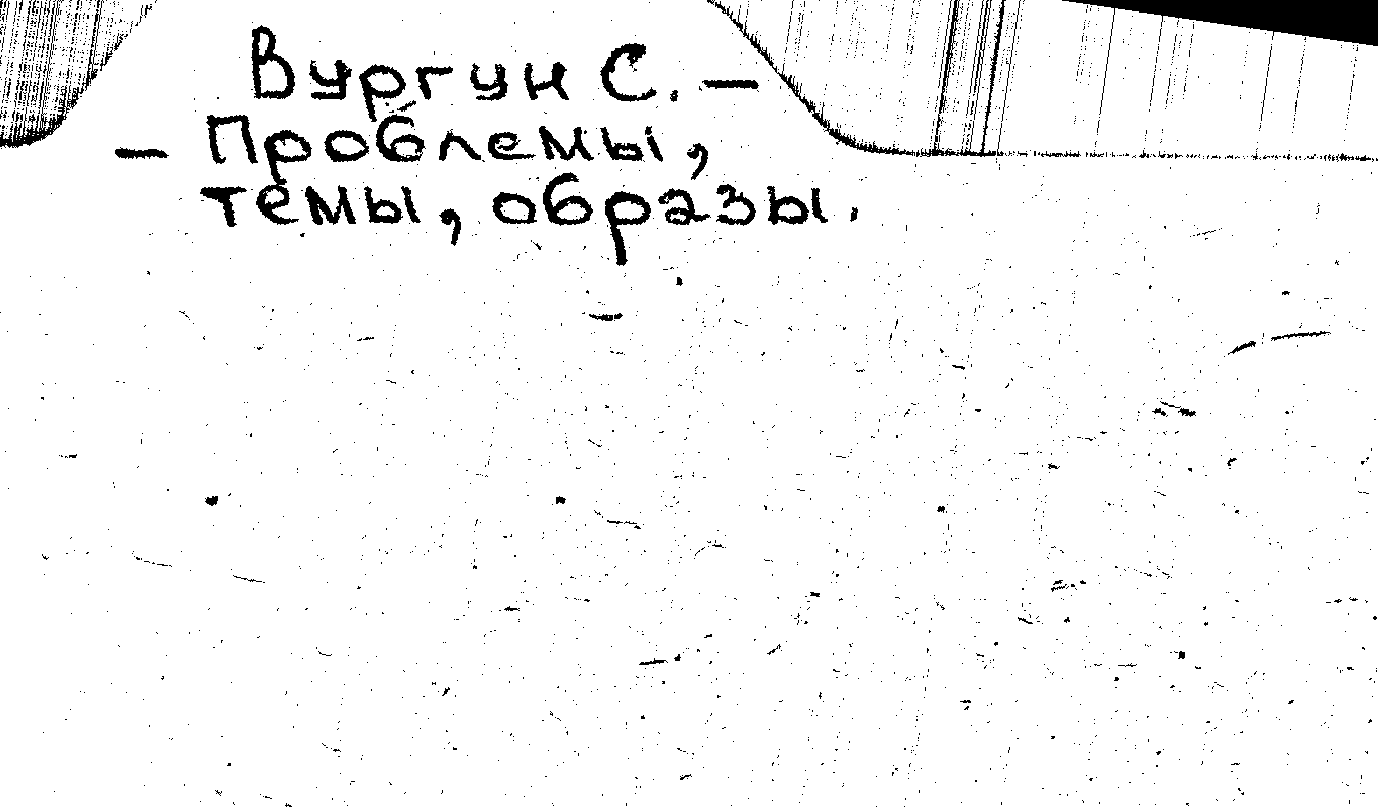 Вургун С. –
– Проблемы,
темы, образы.